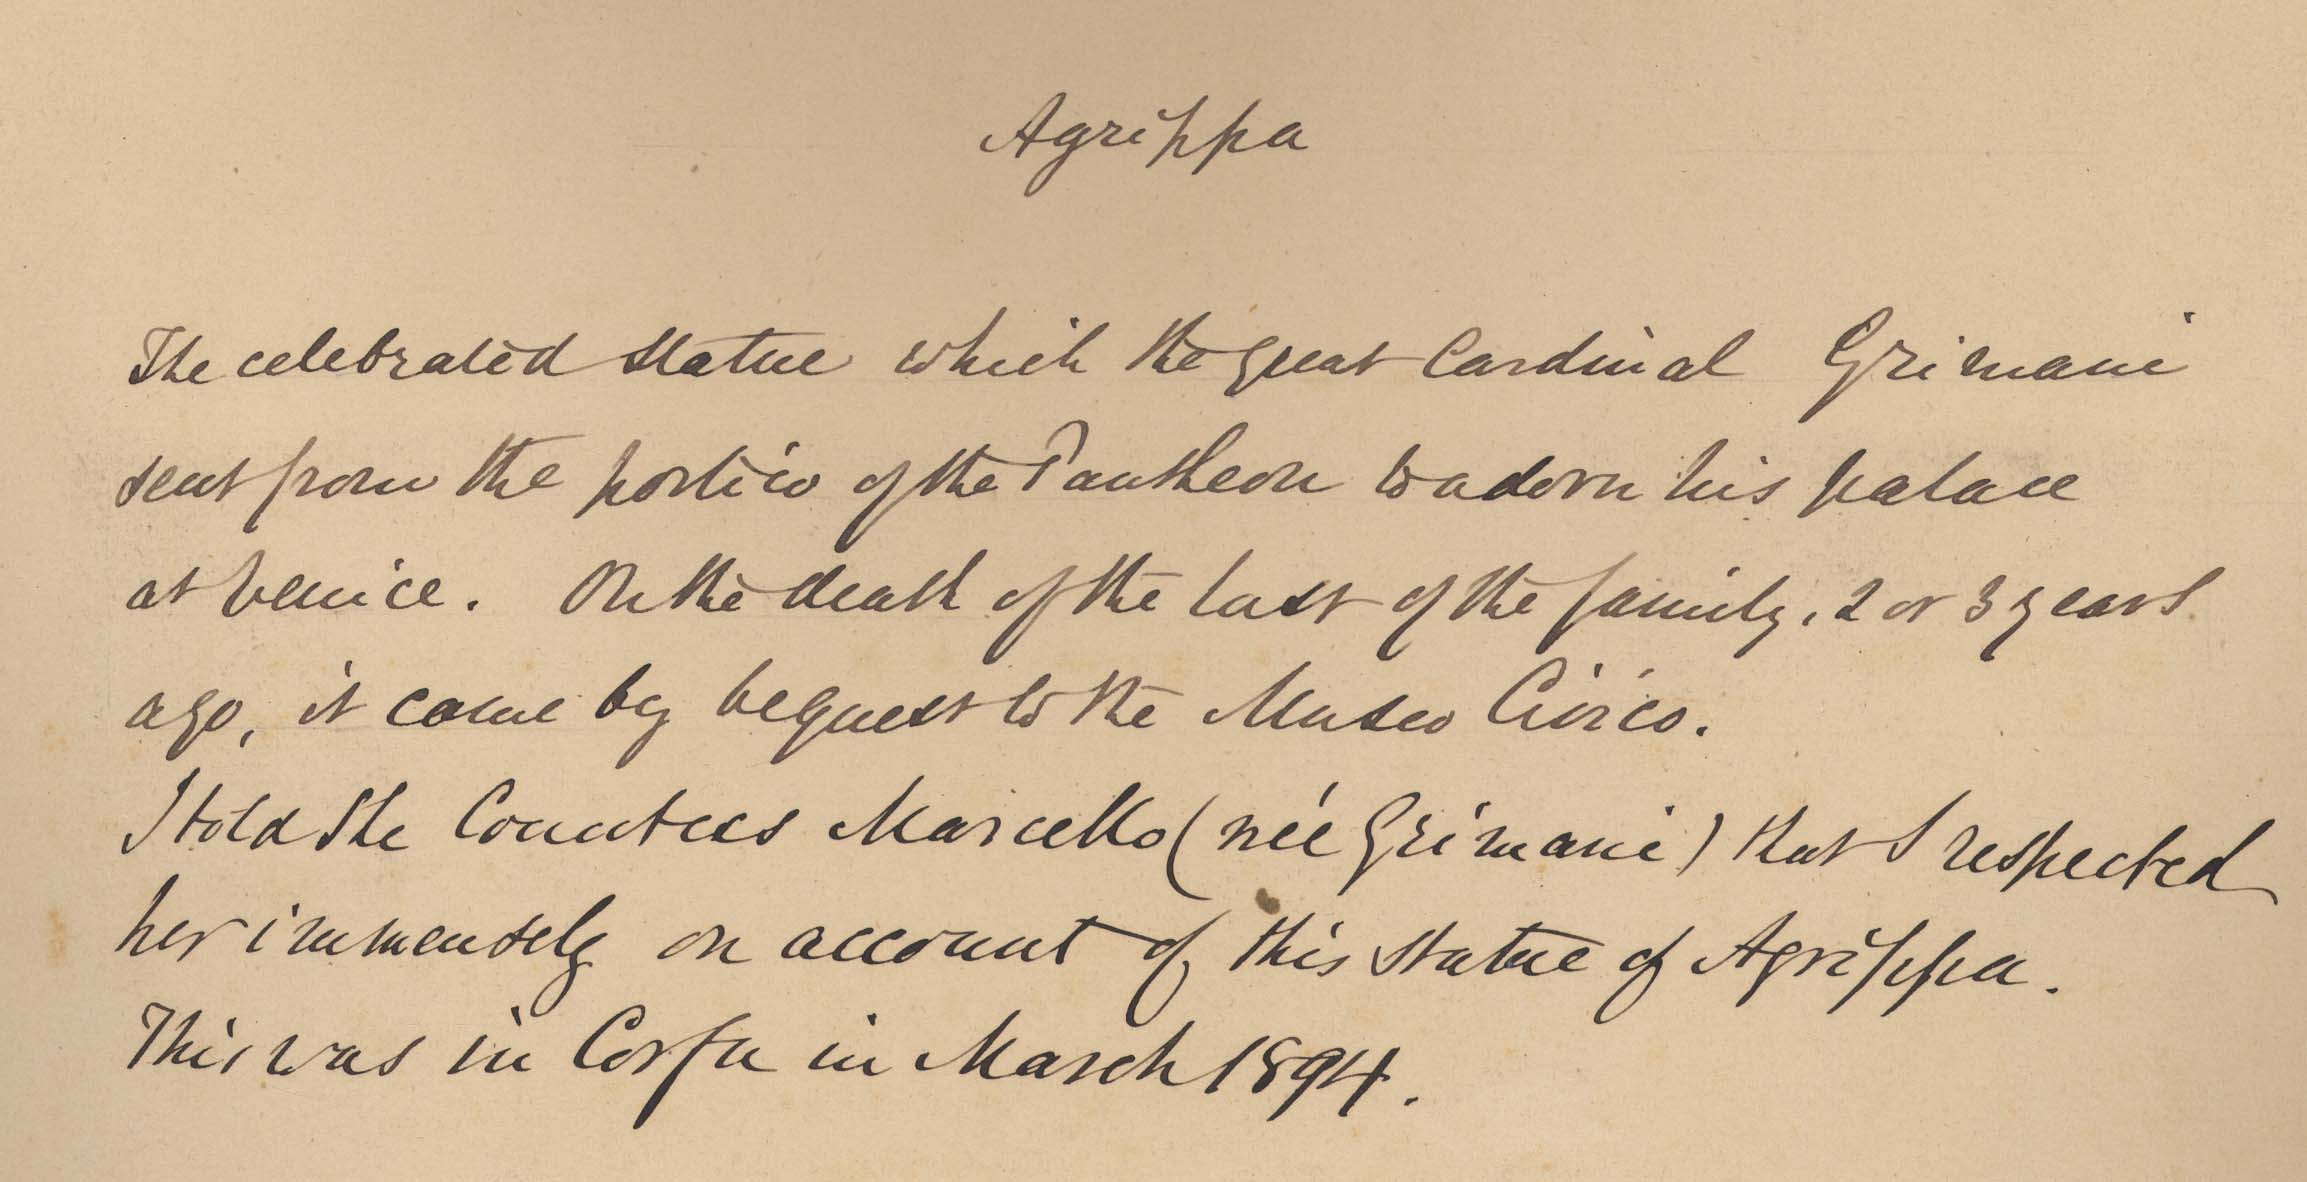 Agrippa
The celebrated statue which the great Cardinal Grimani
sent from the portico of the Pantheon to adorn his palace
at Venice. On the death of the last of the family, 2 or 3 years
ago, it came by bequest to the Museo Civico.
I told the Countess Marcello (née Grimani) that I respected
her immensely on account of this statue of Agrippa.
This was in Corfu in March 1894.